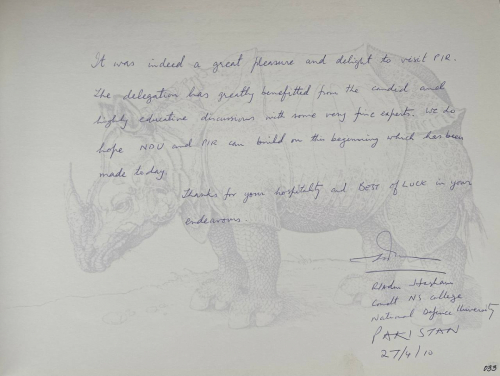 It was indeed a great pleasure and delight to visit PIR.
The delegation has greatly benefitted from the candid and
highly educative discussions with some very fine experts. We do
hope NDU and PIR can build on the beginning which has been
made today.
Thanks for your hospitality and BEST of LUCK in your
endeavours
RAdm Hisham
Comdt NS College
National Defence University
PAKISTAN
27/4/10
033